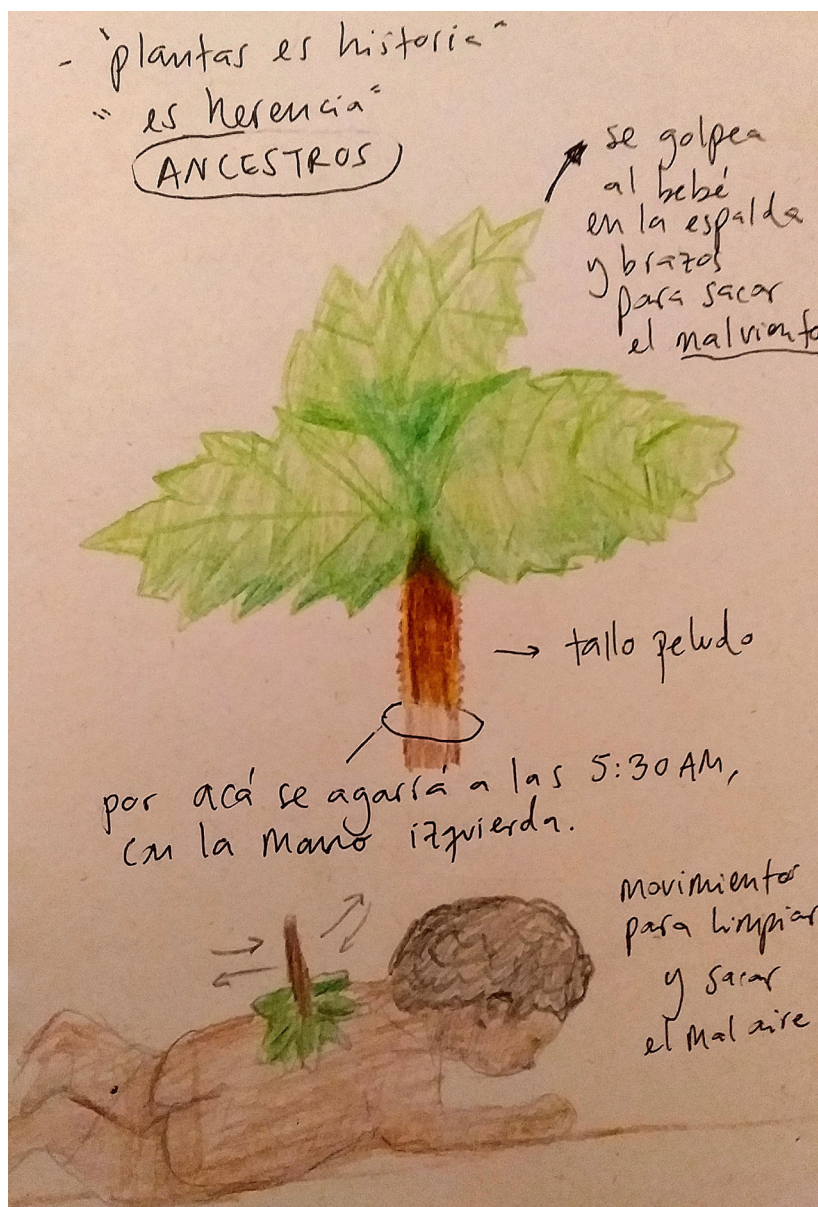 - "plantas es historia"
" es herencia"
ANCESTROS
se golpea
al bebé
en la espalda
y brazos
para sacar
el malviento
→ tallo peludo
por acá se agarrá a las 5:30 AM,
con la mano izquierda.
movimientos
para limpiar
y sacar
el mal aire